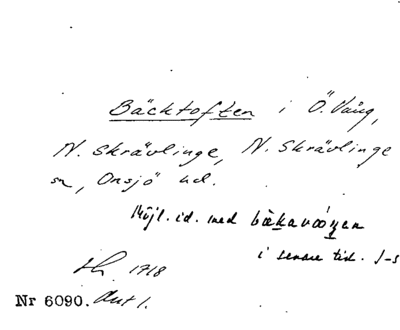 Bäcktoften i Ö. Vång,
N. Skrävlinge, N. Skrävlinge
sn, Onsjö hd.
Möjl. id. med
i senare tid. J-s
1718
Nr 6090. Akt 1.